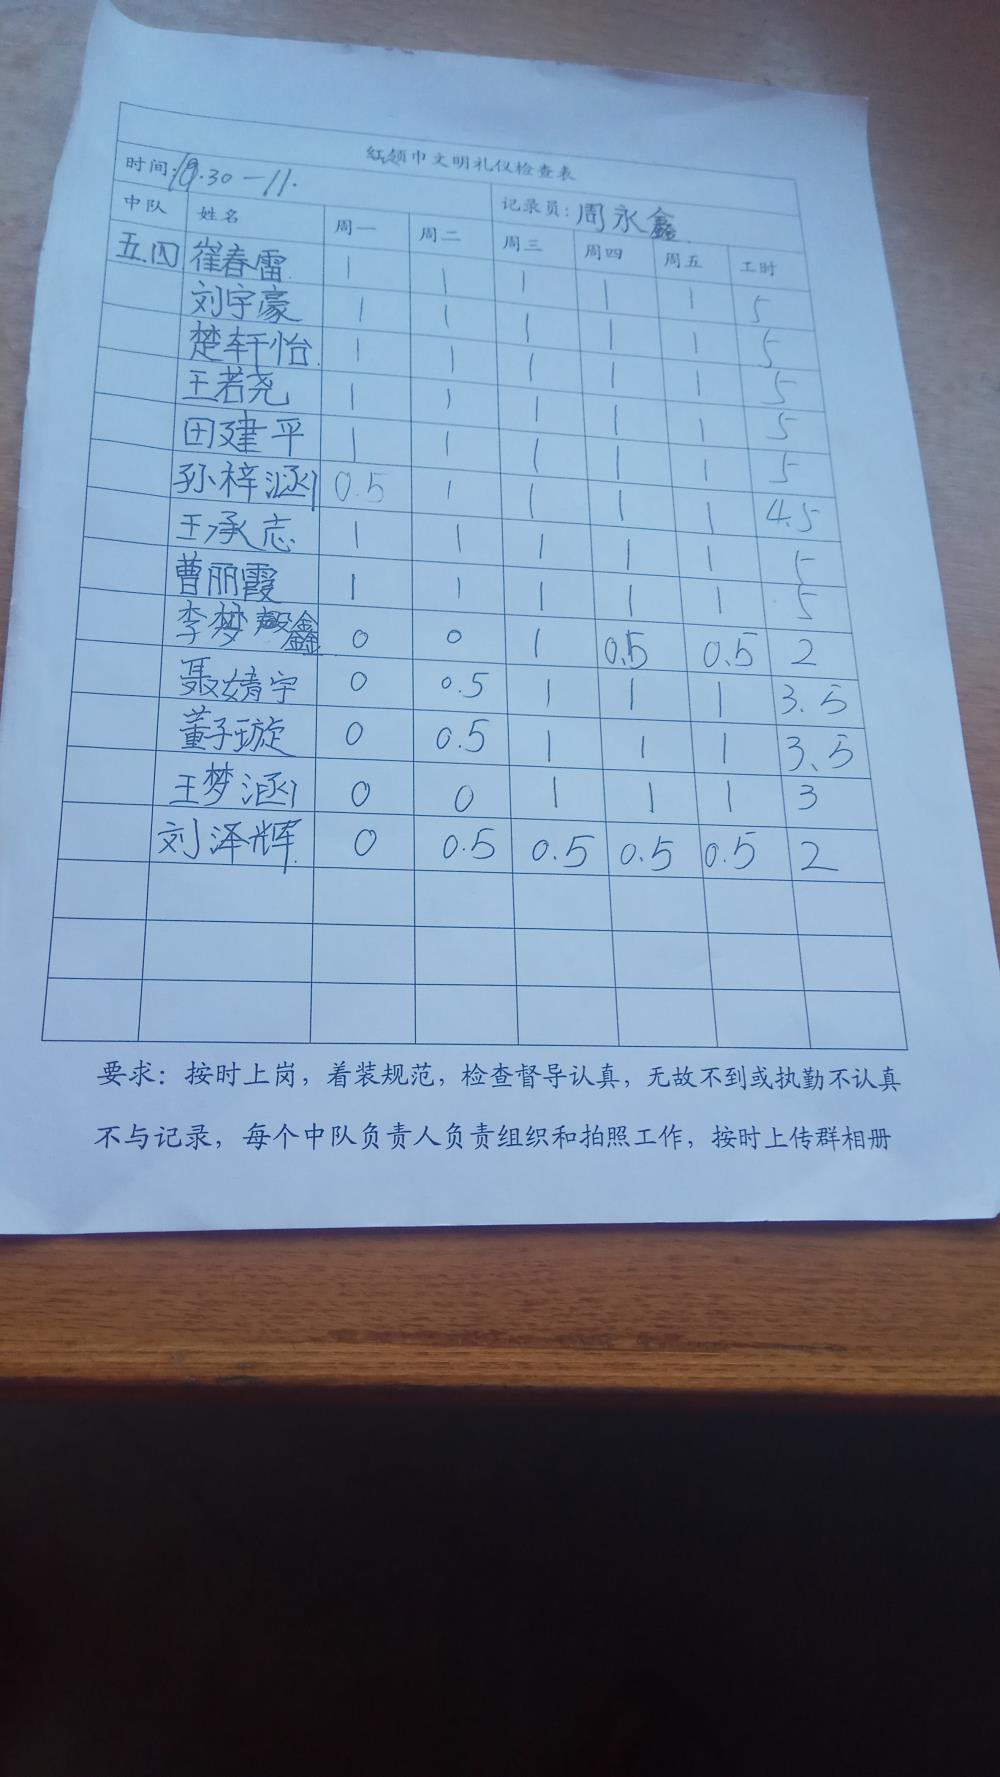 红领巾文明礼仪检查表
时间: 10.30-11. 记录员: 周永鑫
中队 姓名 周一 周二 周三 周四 周五 工时
五.四 崔春雷 1 1 1 1 1 5
刘宇豪 1 1 1 1 1 5
楚轩怡 1 1 1 1 1 5
王若尧 1 1 1 1 1 5
田建平 1 1 1 1 1 5
孙梓涵 0.5 1 1 1 1 4.5
王承志 1 1 1 1 1 5
曹丽霞 1 1 1 1 1 5
李梦鑫 0 0 1 0.5 0.5 2
聂婧宇 0 0.5 1 1 1 3.5
董子璇 0 0.5 1 1 1 3.5
王梦涵 0 0 1 1 1 3
刘泽辉 0 0.5 0.5 0.5 0.5 2
要求：按时上岗，着装规范，检查督导认真，无故不到或执勤不认真
不与记录，每个中队负责人负责组织和拍照工作，按时上传群相册